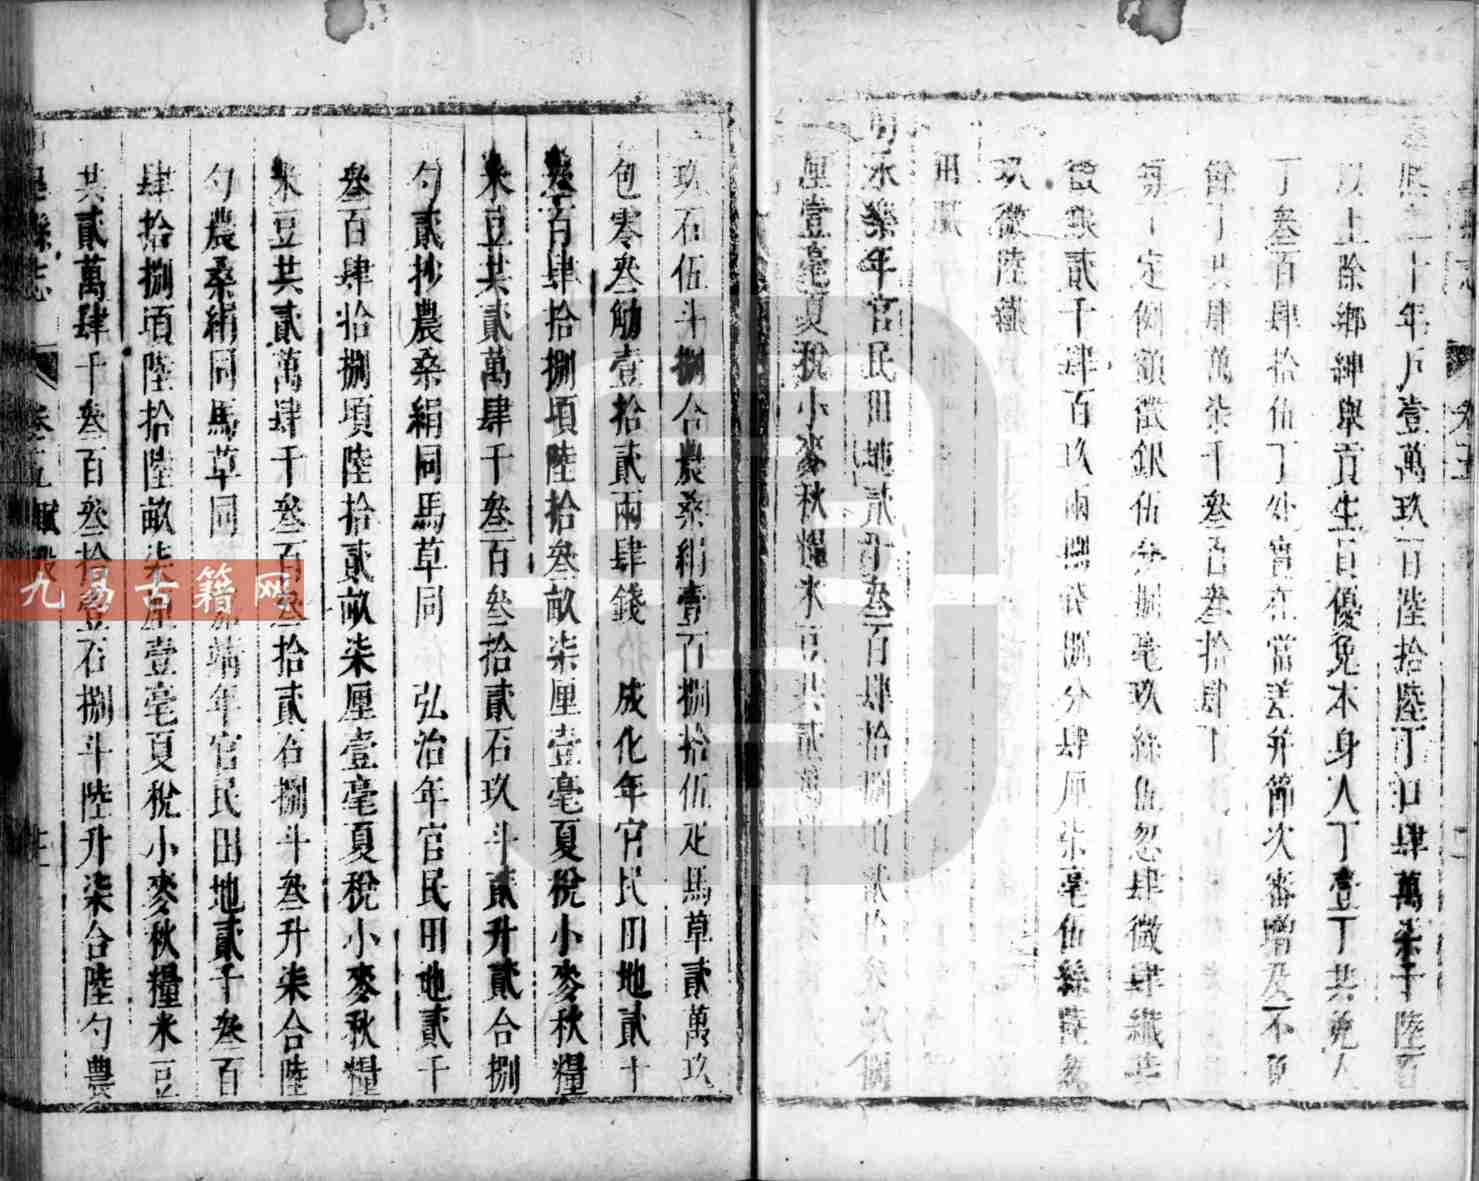 年戶壹萬玖百陸拾陸丁口肆萬柒千陸百
以上除鄉紳舉貢生員優免本身人丁壹丁共免人
丁叁百肆拾伍丁外實在當差并節次審增及不
丁共肆萬柒千叁百叁拾肆丁
定例額徵銀伍分捌毫玖絲伍忽肆微肆纖
銀貳千肆百玖兩 分肆厘柒毫伍絲陸忽
玖微陸纖
田賦
永樂年官民田地貳千叁百肆拾捌
厘壹毫夏稅小麥秋糧米豆共貳萬
玖石伍斗捌合農桑絹壹百捌拾伍疋馬草貳萬玖
包零叁觔壹拾貳兩肆錢 成化年官民田地貳千
叁百肆拾捌頃陸拾叁畝柒厘壹毫夏稅小麥秋糧
米豆共貳萬肆千叁百叁拾貳石玖斗貳升貳合捌
勺貳抄農桑絹同馬草同 弘治年官民田地貳千
叁百肆拾捌頃陸拾貳畝柒厘壹毫夏稅小麥秋糧
米豆共貳萬肆千叁百叁拾貳石捌斗叁升柒合陸
勺農桑絹同馬草同 靖年官民田地貳千叁百
肆拾捌頃陸拾陸畝柒厘壹毫夏稅小麥秋糧米豆
共貳萬肆千叁百叁拾壹石捌斗陸升柒合陸勺農
縣志 卷之五 賦役
九易古籍网